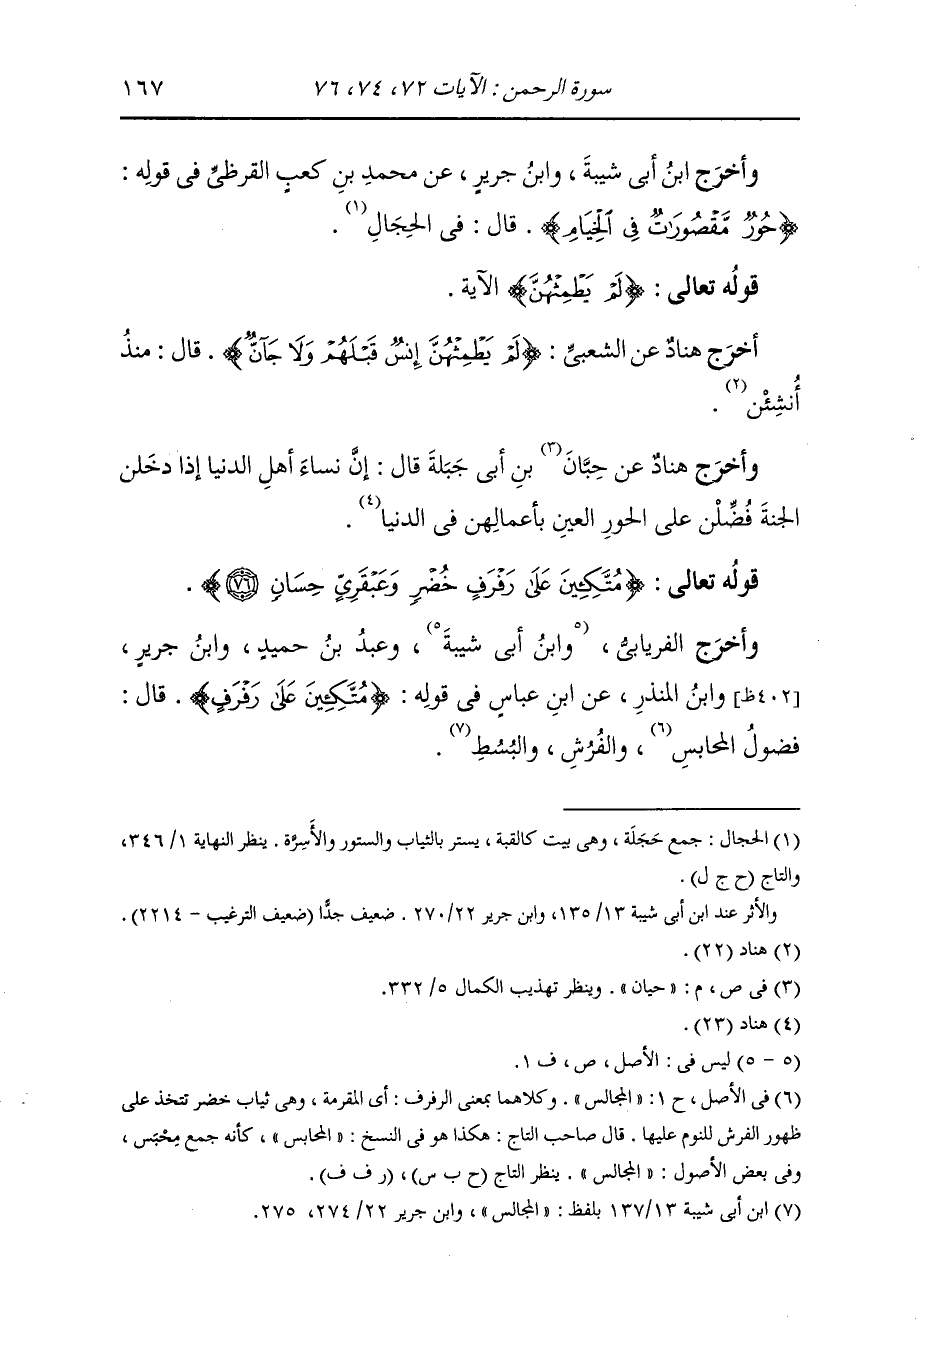 سورة الرحمن : الآيات ٧٢، ٧٤، ٧٦ ١٦٧
وأخرَج ابنُ أبى شيبةَ ، وابنُ جريرٍ ، عن محمدِ بنِ كعبٍ القرظىِّ فى قولِه :
﴿حُورٌ مَّقْصُورَٰتٌ فِى ٱلْخِيَامِ﴾ . قال : فى الحِجَالِ(١) .
قولُه تعالى : ﴿لَمْ يَطْمِثْهُنَّ﴾ الآية .
أخرَج هنادٌ عن الشعبىِّ : ﴿لَمْ يَطْمِثْهُنَّ إِنسٌ قَبْلَهُمْ وَلَا جَآنٌّ﴾ . قال : منذُ
أُنشِئْن(٢) .
وأخرَج هنادٌ عن حِبَّانَ(٣) بنِ أبى جَبَلةَ قال : إنَّ نساءَ أهلِ الدنيا إذا دخَلن
الجنةَ فُضِّلْن على الحورِ العينِ بأعمالِهن فى الدنيا(٤) .
قولُه تعالى : ﴿مُتَّكِـِٔينَ عَلَىٰ رَفْرَفٍ خُضْرٍ وَعَبْقَرِىٍّ حِسَانٍ ٧٦﴾ .
وأخرَج الفريابىُّ ، (٥وابنُ أبى شيبةَ٥) ، وعبدُ بنُ حميدٍ ، وابنُ جريرٍ ،
[٤٠٢ظ] وابنُ المنذرِ ، عن ابنِ عباسٍ فى قولِه : ﴿مُتَّكِـِٔينَ عَلَىٰ رَفْرَفٍ﴾ . قال :
فضولُ المحابسِ(٦) ، والفُرُشِ ، والبُسُطِ(٧) .
(١) الحجال : جمع حَجَلَة ، وهى بيت كالقبة ، يستر بالثياب والستور والأَسِرَّة . ينظر النهاية ١/ ٣٤٦،
والتاج (ح ج ل) .
والأثر عند ابن أبى شيبة ١٣/ ١٣٥، وابن جرير ٢٢/ ٢٧٠ . ضعيف جدًّا (ضعيف الترغيب – ٢٢١٤) .
(٢) هناد (٢٢) .
(٣) فى ص ، م : « حيان » . وينظر تهذيب الكمال ٥/ ٣٣٢.
(٤) هناد (٢٣) .
(٥ – ٥) ليس فى : الأصل ، ص ، ف ١.
(٦) فى الأصل ، ح ١: « المجالس » . وكلاهما بمعنى الرفرف : أى المقرمة ، وهى ثياب خضر تتخذ على
ظهور الفرش للنوم عليها . قال صاحب التاج : هكذا هو فى النسخ : « المحابس » ، كأنه جمع مِحْبَس ،
وفى بعض الأصول : « المجالس » . ينظر التاج (ح ب س) ، (ر ف ف) .
(٧) ابن أبى شيبة ١٣/ ١٣٧ بلفظ : « المجالس » ، وابن جرير ٢٢/ ٢٧٤، ٢٧٥.